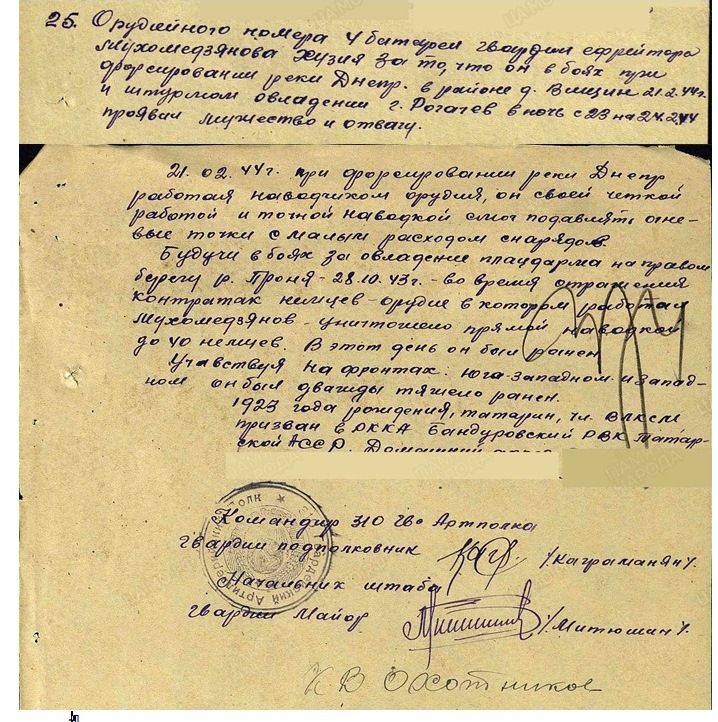 25. Орудийного номера 4 батареи гвардии ефрейтора
Мухомедзянова Хузия за то, что он в боях при
форсировании реки Днепр в районе д. Вищин 21.2.44г.
и штурмом овладении г. Рогачев в ночь с 23 на 24.2.44
проявил мужество и отвагу.
21.02.44г. при форсировании реки Днепр
работая наводчиком орудия, он своей четкой
работой и точной наводкой смог подавлять огне-
вые точки с малым расходом снарядов.
Будучи в боях за овладение плацдарма на правом
берегу р. Проня - 28.10.43г. - во время отражения
контратак немцев - орудие в котором работал
Мухомедзянов - уничтожено прямой наводкой
до 40 немцев. В этот день он был ранен
Учавствуя на фронтах: Юга-западном и запад-
ном он был дважды тяжело ранен.
1923 года рождения, татарин, чл. ВЛКСМ
призван в РККА Бандуровский РВК Татар-
ской АССР. Домашний
Командир 310 гв. Артполка
гвардии подполковник /Каграманян/.
Начальник штаба
гвардии Майор /Митюшин/.
КВ Охотников